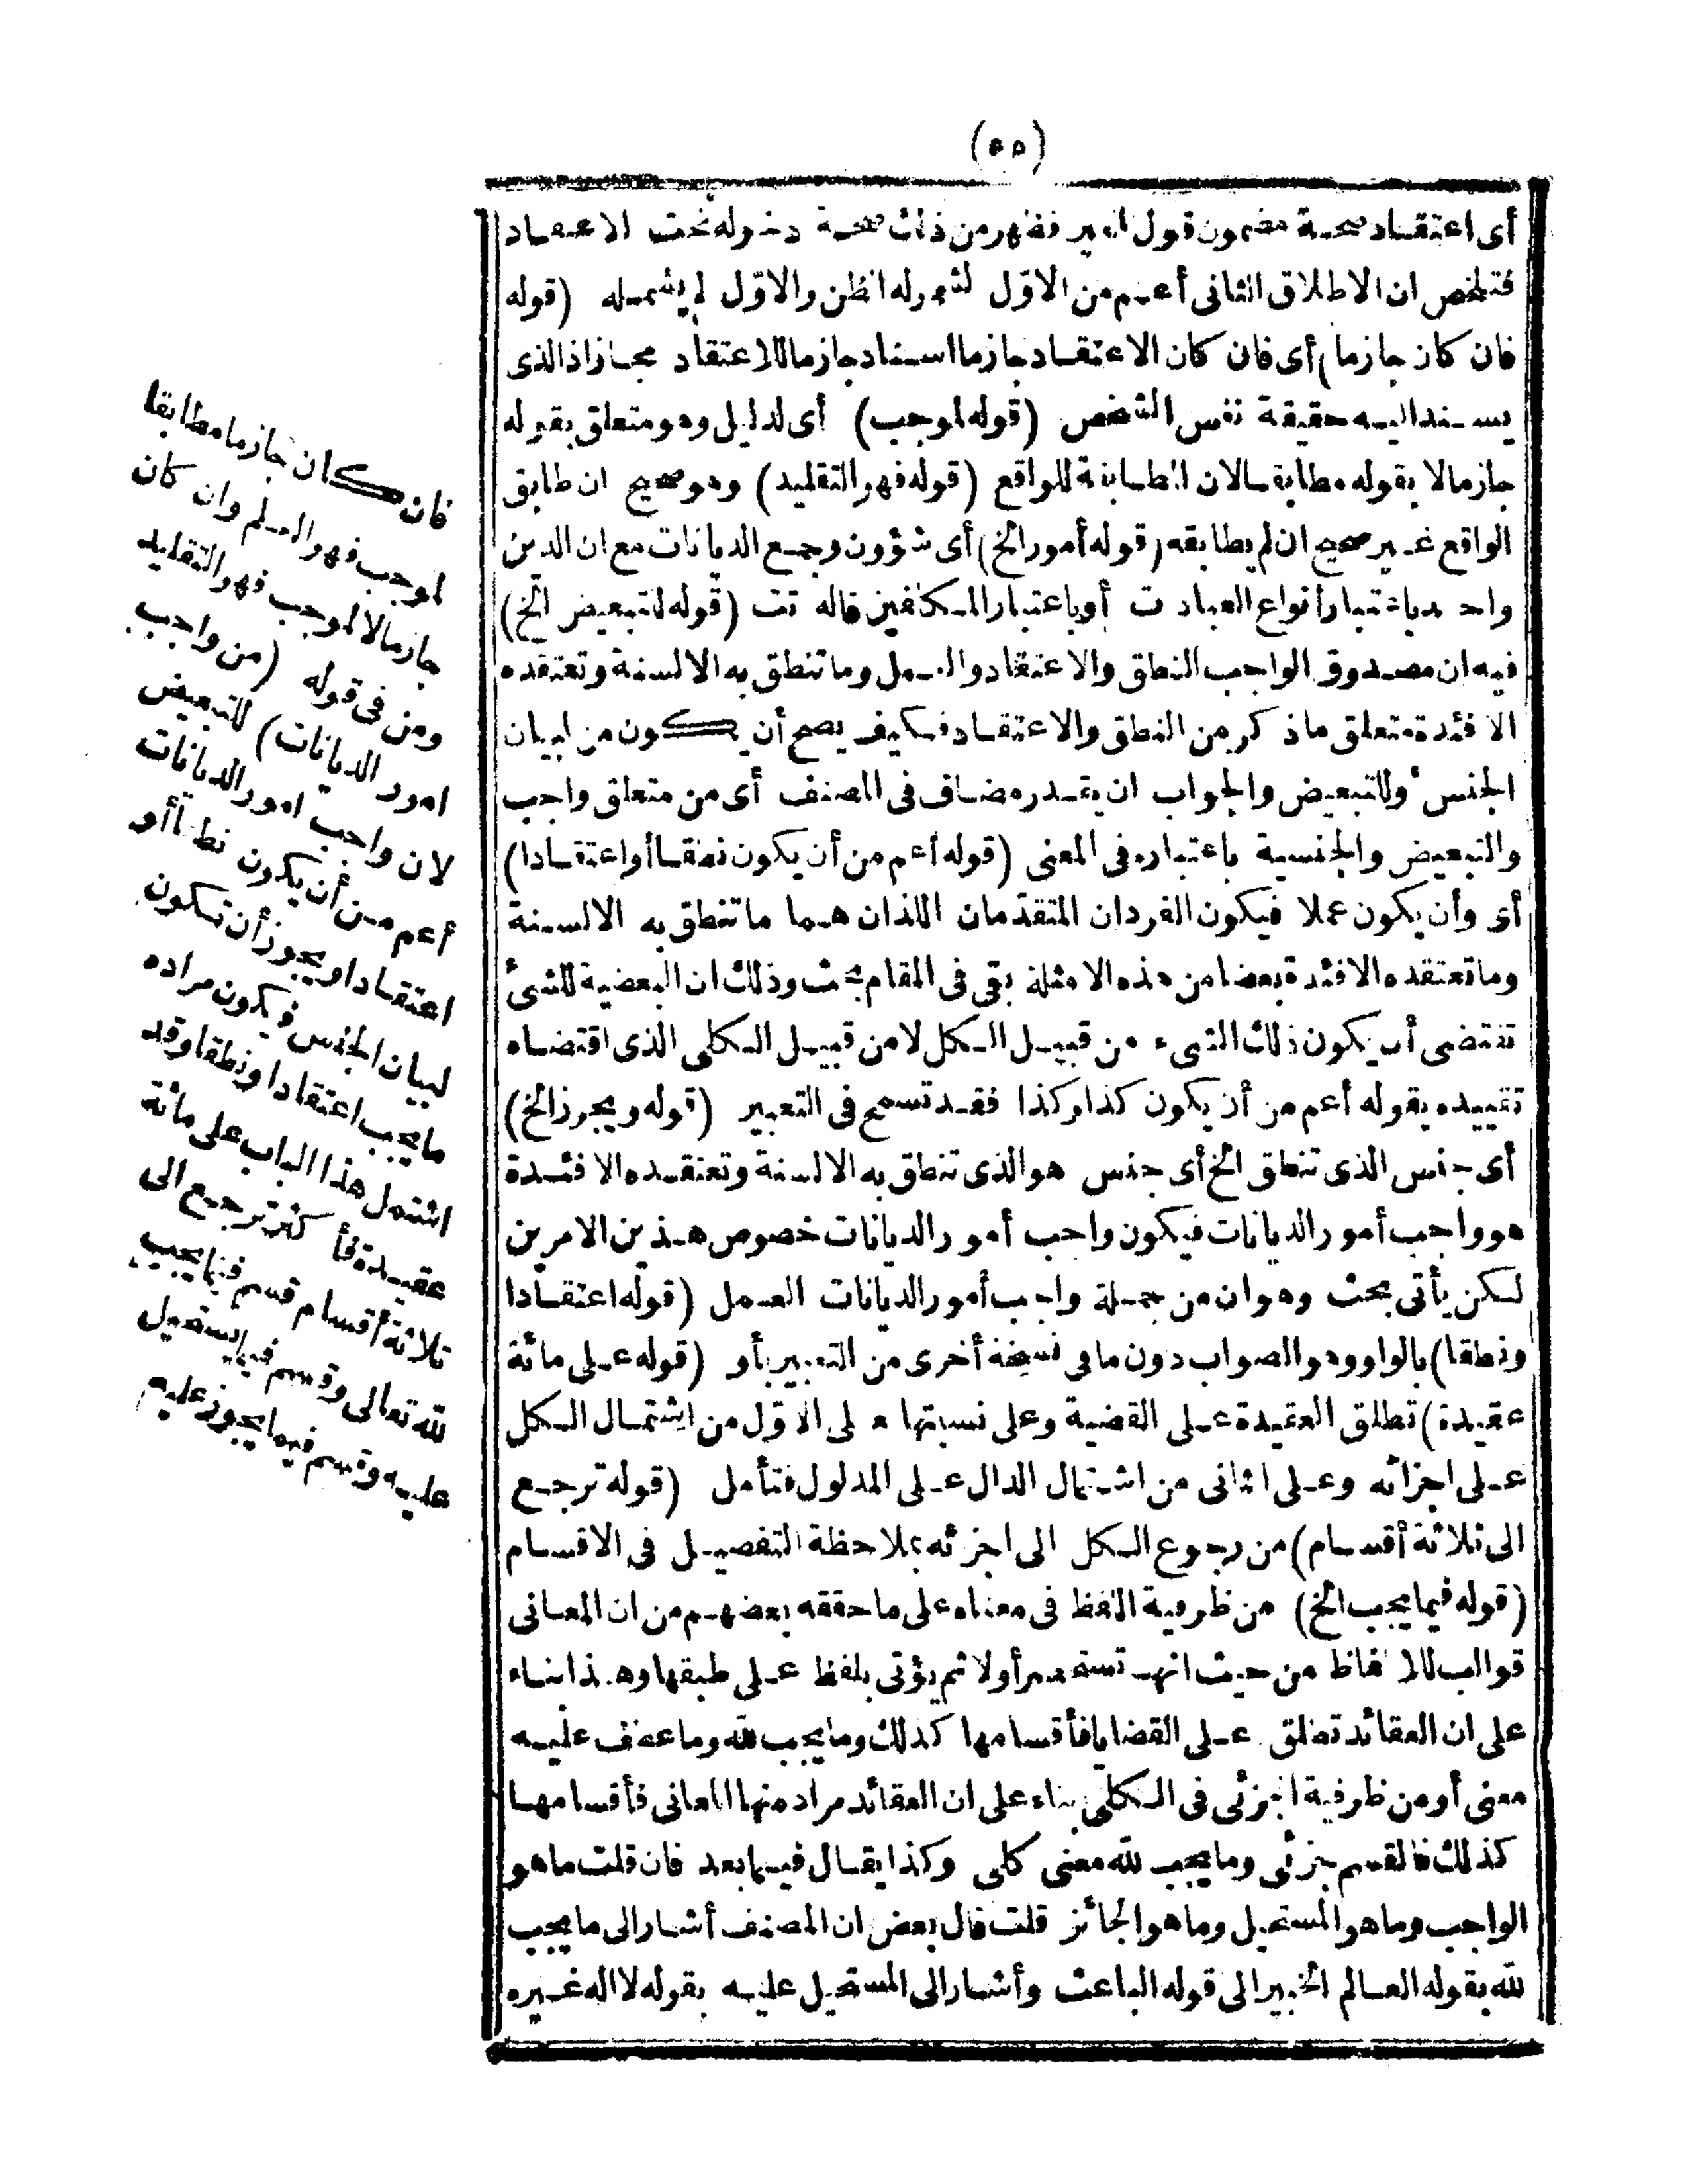 (٥٥)
أى اعتقاد صحة مضمون قول الغير فظهر من ذلك صحة دخوله تحت الاعتقاد
فتلخص ان الاطلاق الثانى أعم من الاوّل لشموله الظن والاوّل لم يشمله (قوله
فان كان جازما) أى فان كان الاعتقاد جازما اسناد جازما للاعتقاد مجاز اذ الذى
يسند اليه حقيقة نفس الشخص (قوله لموجب) أى لدليل وهو متعلق بقوله
جازما لا بقوله مطابقا لان المطابقة للواقع (قوله فهو التقليد) وهو صحيح ان طابق
الواقع غير صحيح ان لم يطابقه (قوله أمور الخ) أى شؤون وجمع الديانات مع ان الدين
واحد باعتبار أنواع العبادت أو باعتبار المكلفين قاله تت (قوله للتبعيض الخ)
فيه ان مصدوق الواجب النطق والاعتقاد والعمل وما تنطق به الالسنة وتعتقده
الافئدة متعلق ما ذكر من النطق والاعتقاد فكيف يصح أن يكون من لبيان
الجنس أو للتبعيض والجواب ان يقدر مضاف فى المصنف أى من متعلق واجب
والتبعيض والجنسية باعتباره فى المعنى (قوله أعم من أن يكون نطقا أو اعتقادا)
أى وأن يكون عملا فيكون الفردان المتقدّمان اللذان هما ما تنطق به الالسنة
وما تعتقده الافئدة بعضا من هذه الامثلة بقى فى المقام بحث وذلك ان البعضية للشئ
تقتضى أن يكون ذلك الشىء من قبيل الكل لا من قبيل الكلى الذى اقتضاه
تقييده بقوله أعم من أن يكون كذا وكذا فقد تسمح فى التعبير (قوله ويجوز الخ)
أى جنس الذى تنطق الخ أى جنس هو الذى تنطق به الالسنة وتعتقده الافئدة
هو واجب أمور الديانات فيكون واجب أمور الديانات خصوص هذين الامرين
لكن يأتى بحث وهو ان من جملة واجب أمور الديانات العمل (قوله اعتقادا
ونطقا) بالواو وهو الصواب دون ما فى نسخة أخرى من التعبير بأو (قوله على مائة
عقيدة) تطلق العقيدة على القضية وعلى نسبتها على الاوّل من اشتمال الكل
على اجزائه وعلى الثانى من اشتمال الدال على المدلول فتأمل (قوله ترجع
الى ثلاثة أقسام) من رجوع الكل الى اجزئه بملاحظة التفصيل فى الاقسام
(قوله فيما يجب الخ) من ظرفية اللفظ فى معناه على ما حققه بعضهم من ان المعانى
قوالب للالفاظ من حيث انها تستحضر أولا ثم يؤتى بلفظ على طبقها وهذا بناء
على ان العقائد تطلق على القضايا فأقسامها كذلك وما يجب لله وما عطف عليه
معنى أو من ظرفية الجزئى فى الكلى بناء على ان العقائد مراد منها المعانى فأقسامها
كذلك فالقسم جزئى وما يجب لله معنى كلى وكذا يقال فيما بعد فان قلت ما هو
الواجب وما هو المستحيل وما هو الجائز قلت قال بعض ان المصنف أشار الى ما يجب
لله بقوله العالم الخبير الى قوله الباعث وأشار الى المستحيل عليه بقوله لا اله غيره
فان كان جازما مطابقا
لموجب فهو العلم وان كان
جازما لا لموجب فهو التقليد
ومن فى قوله (من واجب
امور الديانات) للتبعيض
لان واجب امور الديانات
أعم من أن يكون نطقا أو
اعتقادا ويجوز أن تكون
لبيان الجنس فيكون مراده
ما يجب اعتقادا ونطقا وقد
اشتمل هذا الباب على مائة
عقيدة فأكثر ترجع الى
ثلاثة أقسام قسم فيما يجب
لله تعالى وقسم فيما يستحيل
عليه وقسم فيما يجوز عليه